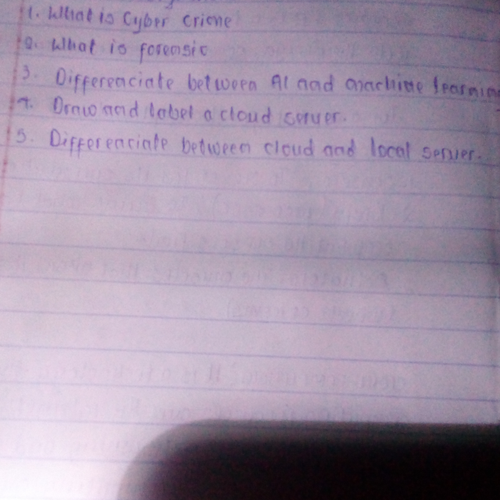 1. What is Cyber crime
2. What is forensic
3. Differenciate between AI and machine learning
4. Draw and label a cloud server.
5. Differenciate between cloud and local server.